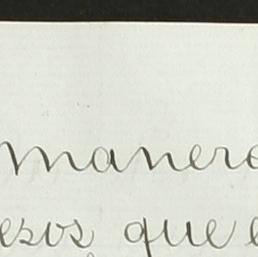 manera
esos que e